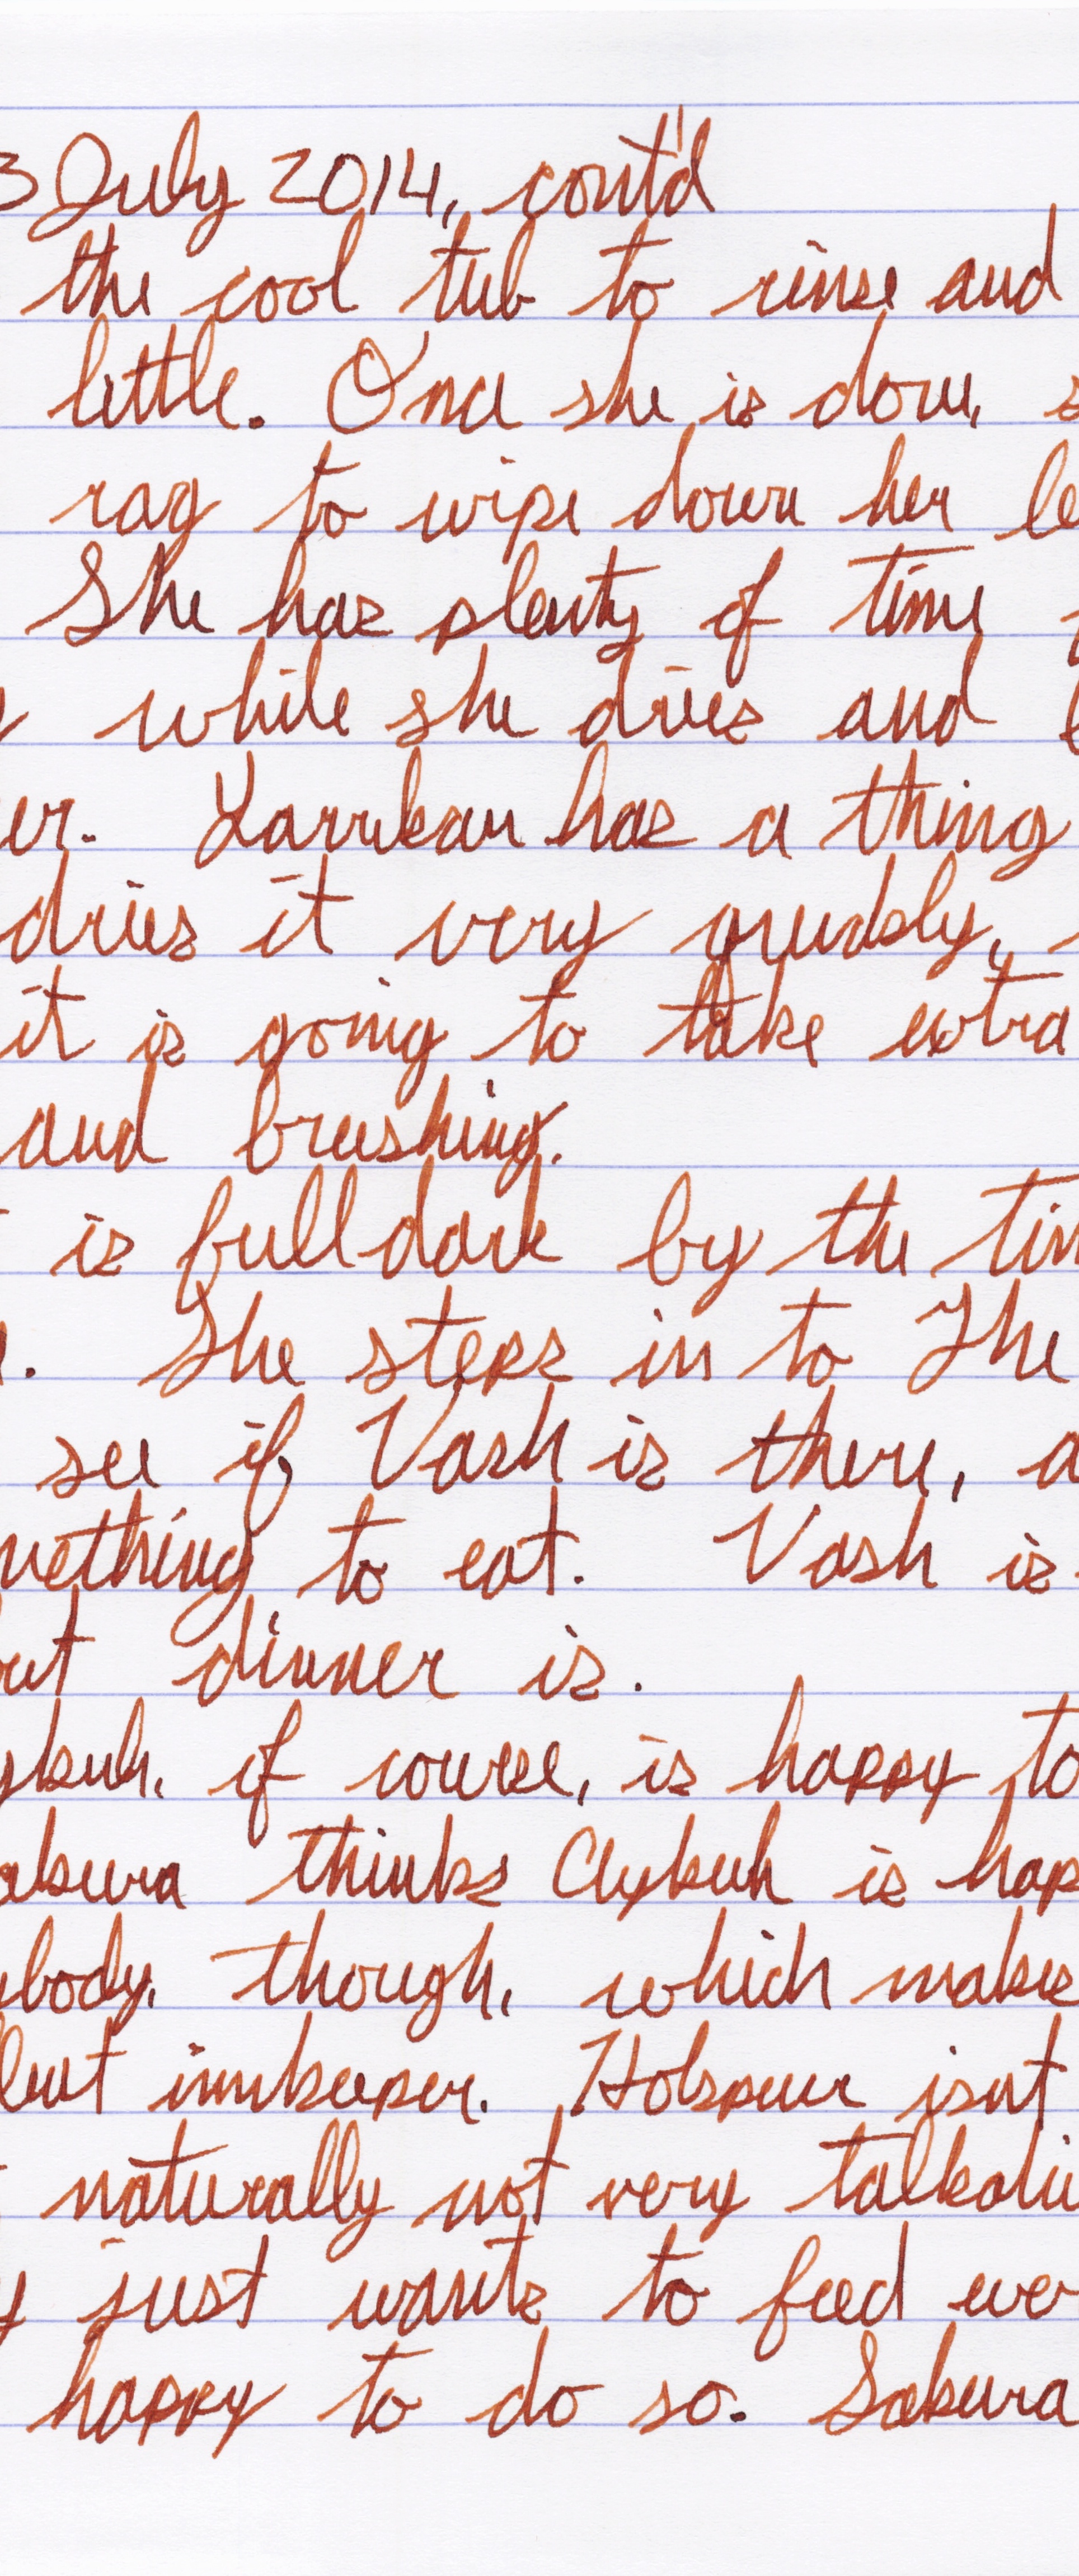 3 July 2014, cont'd
the cool tub to rinse and
little. Once she is done, s
rag to wipe down her le
She has plenty of time
while she dries and
er. has a thing
dries it very
it is going to take extra
and brushing.
is full dark by the tim
. She steps in to The
see if Vash is there, a
mething to eat. Vash is
but dinner is.
ykuh, of course, is happy to
akura thinks Clykuh is hap
body, though, which makes
llent innkeeper. isnt
naturally not very talkativ
y just wants to feed eve
happy to do so. Sakura